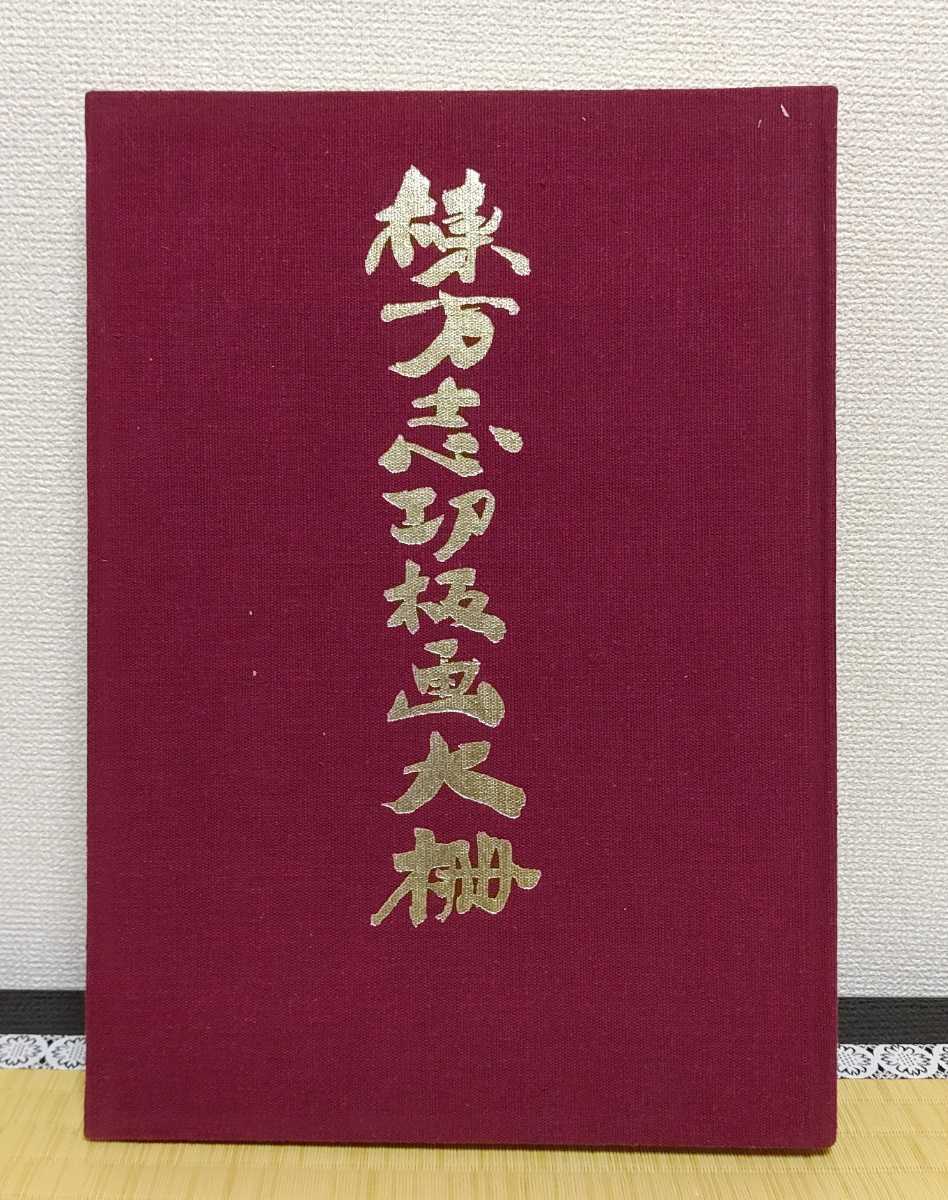 棟方志功板画大柵